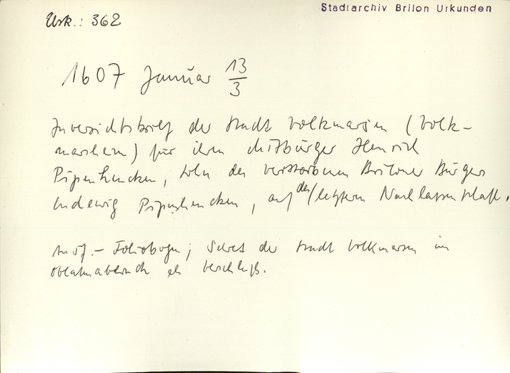 Urk.: 362
Stadtarchiv Brilon Urkunden
1607 Januar 13/3
der Stadt Volkmarsen (Volk-
marshem) für ihren Mitbürger Henrich
Pipenhencken, Sohn des verstorbenen Briloner Bürgers
Ludewig Pipenhencken, auf des/letztern Nachlassenschaft.
Ausf. - Foliobogen; Secret der Stadt Volkmarsen im
als Verschluß.